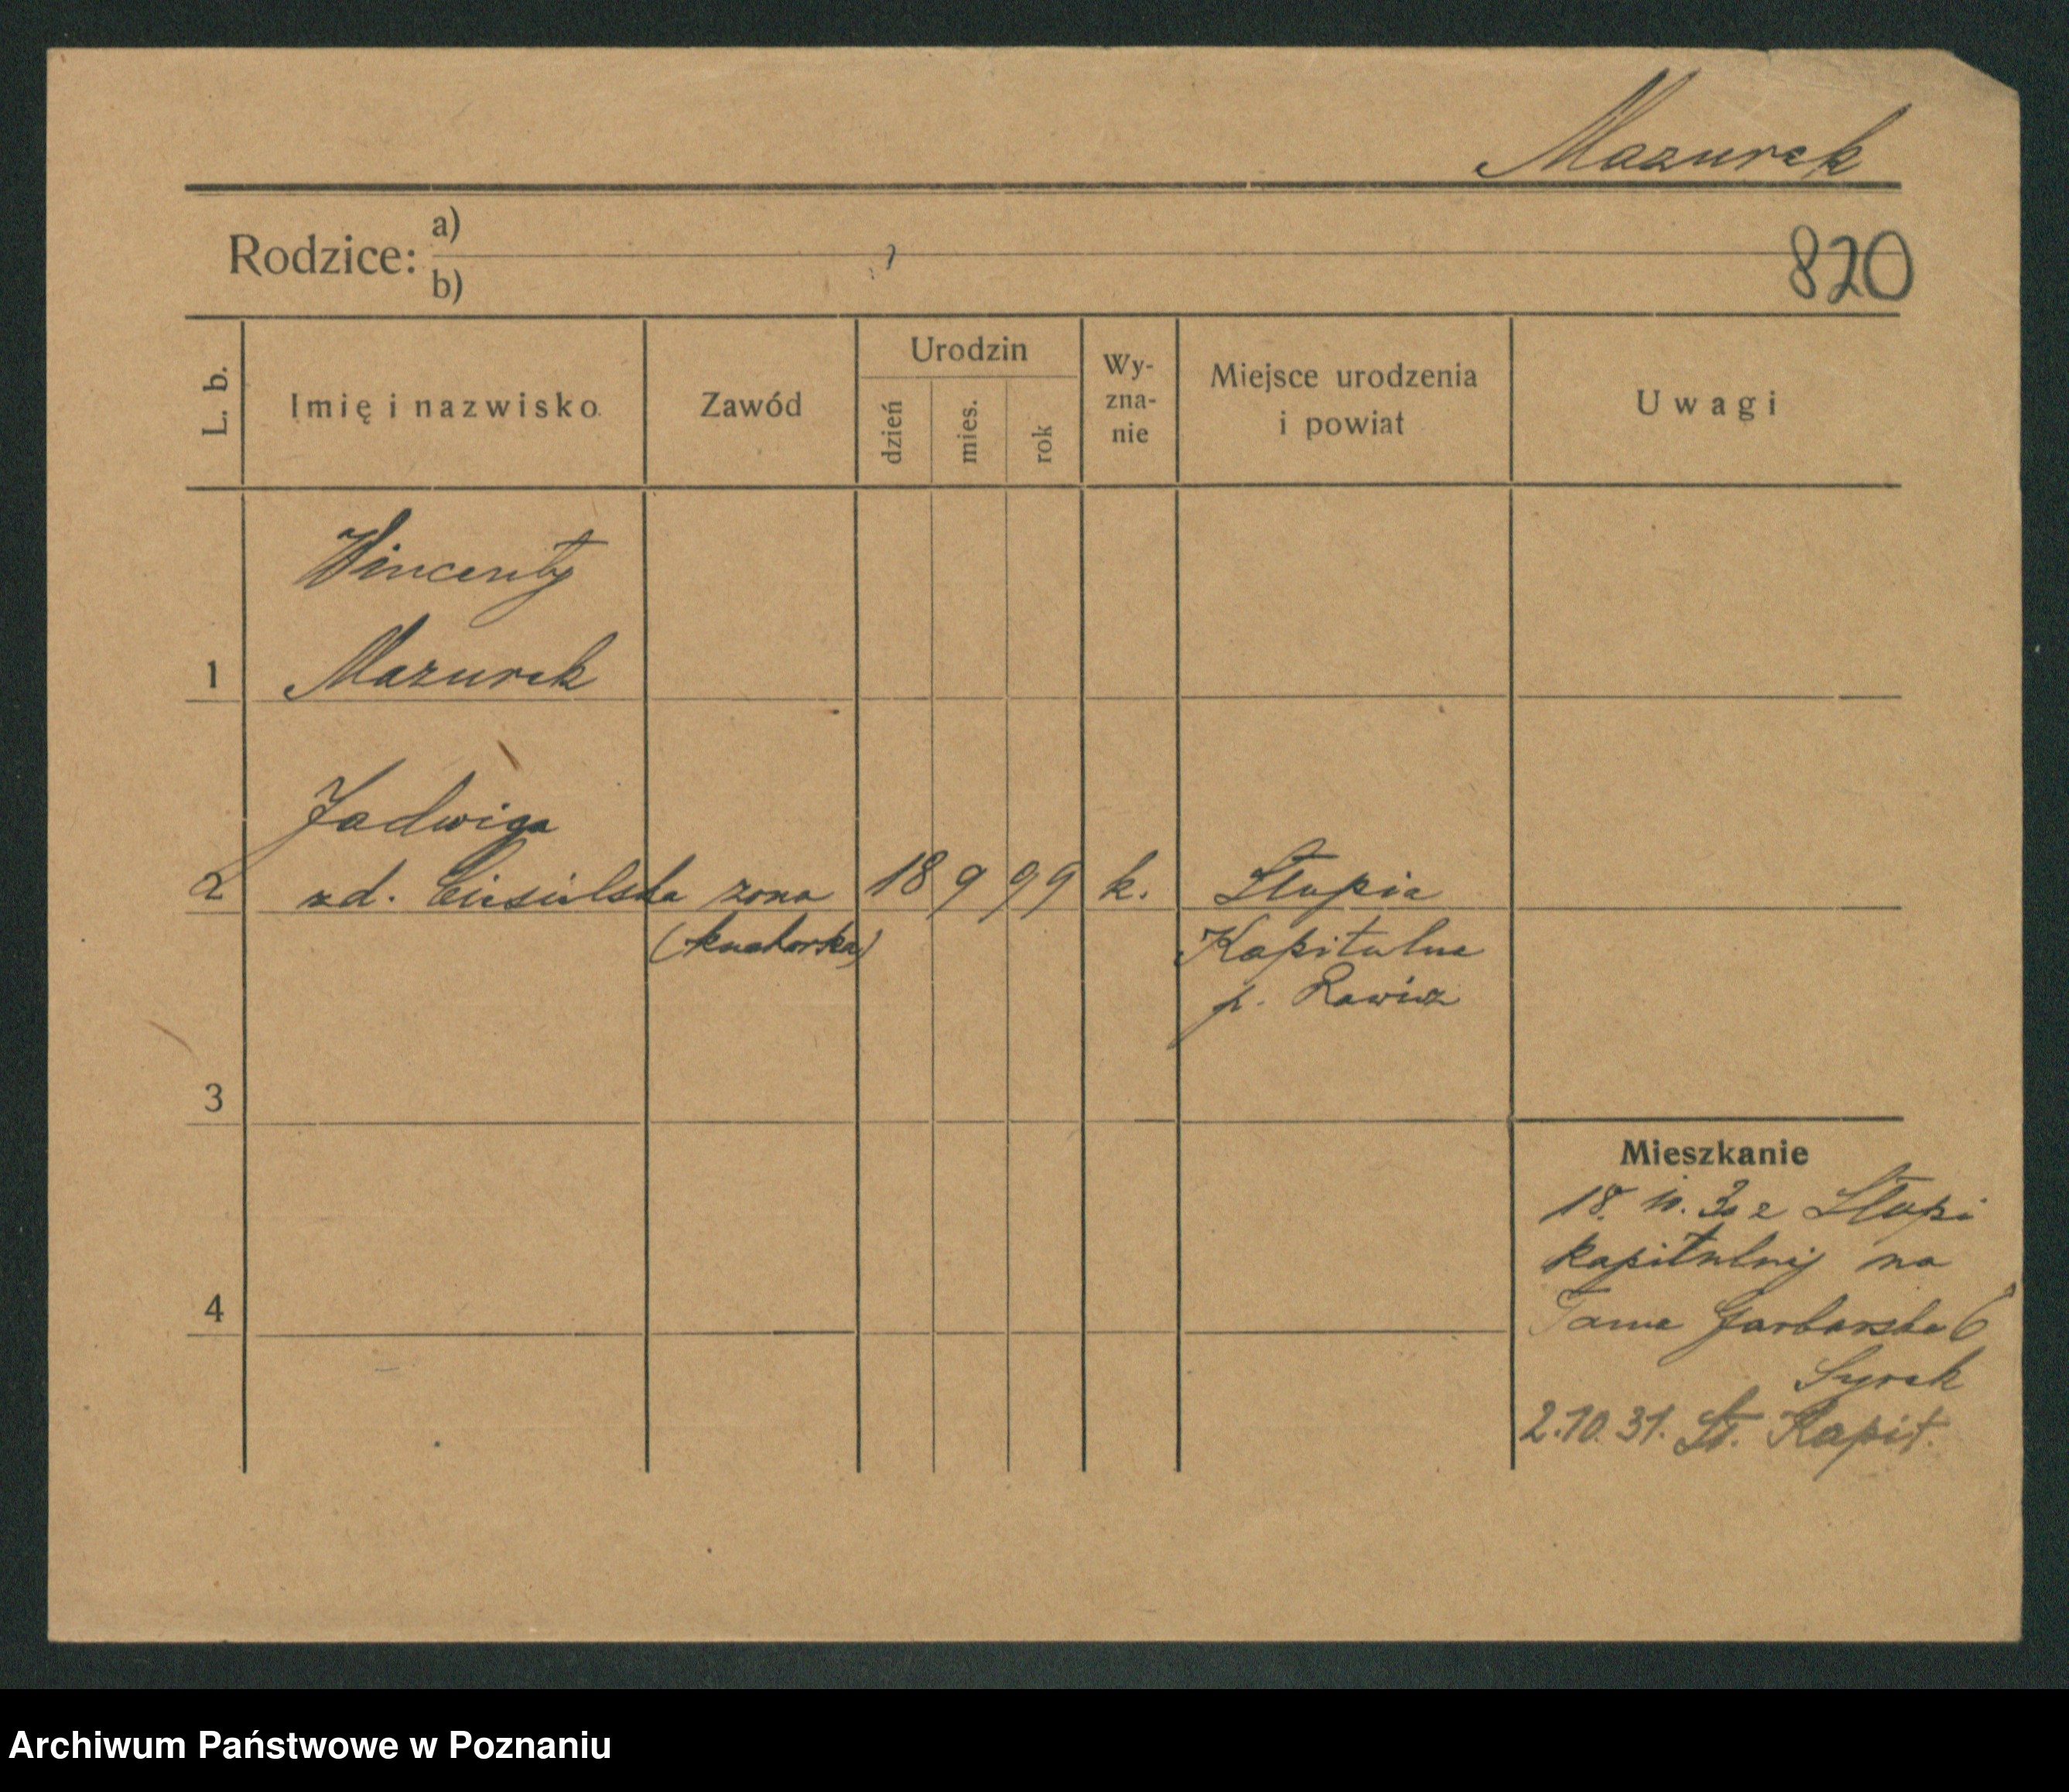 Mazurek
Rodzice: a)
b)
820
L. b.
Imię i nazwisko
Zawód
Urodzin
dzień
mies.
rok
Wy-
zna-
nie
Miejsce urodzenia
i powiat
Uwagi
Wincenty
1 Mazurek
Jadwiga
2 zd. Ciesielska żona 18 9 99 k. Słupia
(kucharka) Kapitulna
p. Rawicz
3
Mieszkanie
18. 10. 30 z Słupi
kapitulnej na
4
Tama Garbarska 6
2.10.31. Sł. Kapit.
Archiwum Państwowe w Poznaniu